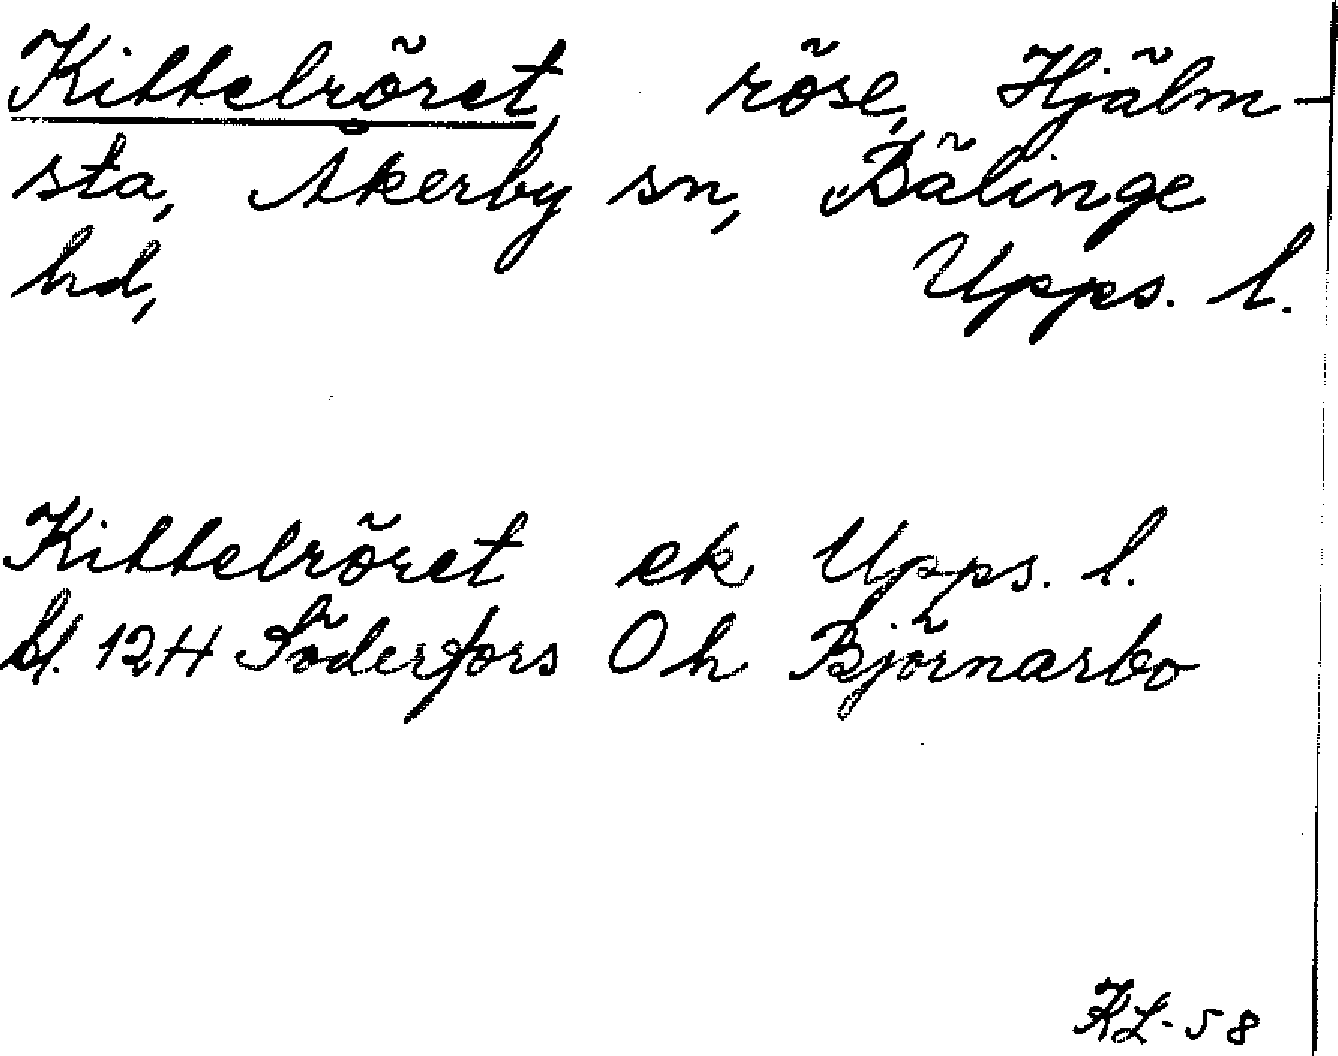 Kittelröret, röse, Hjälm-
sta, Åkerby sn, Bälinge
hd, Upps. l.
Kittelröret ek Upps. l.
bl. 12H Söderfors 0 h Björnarbo
KL-58